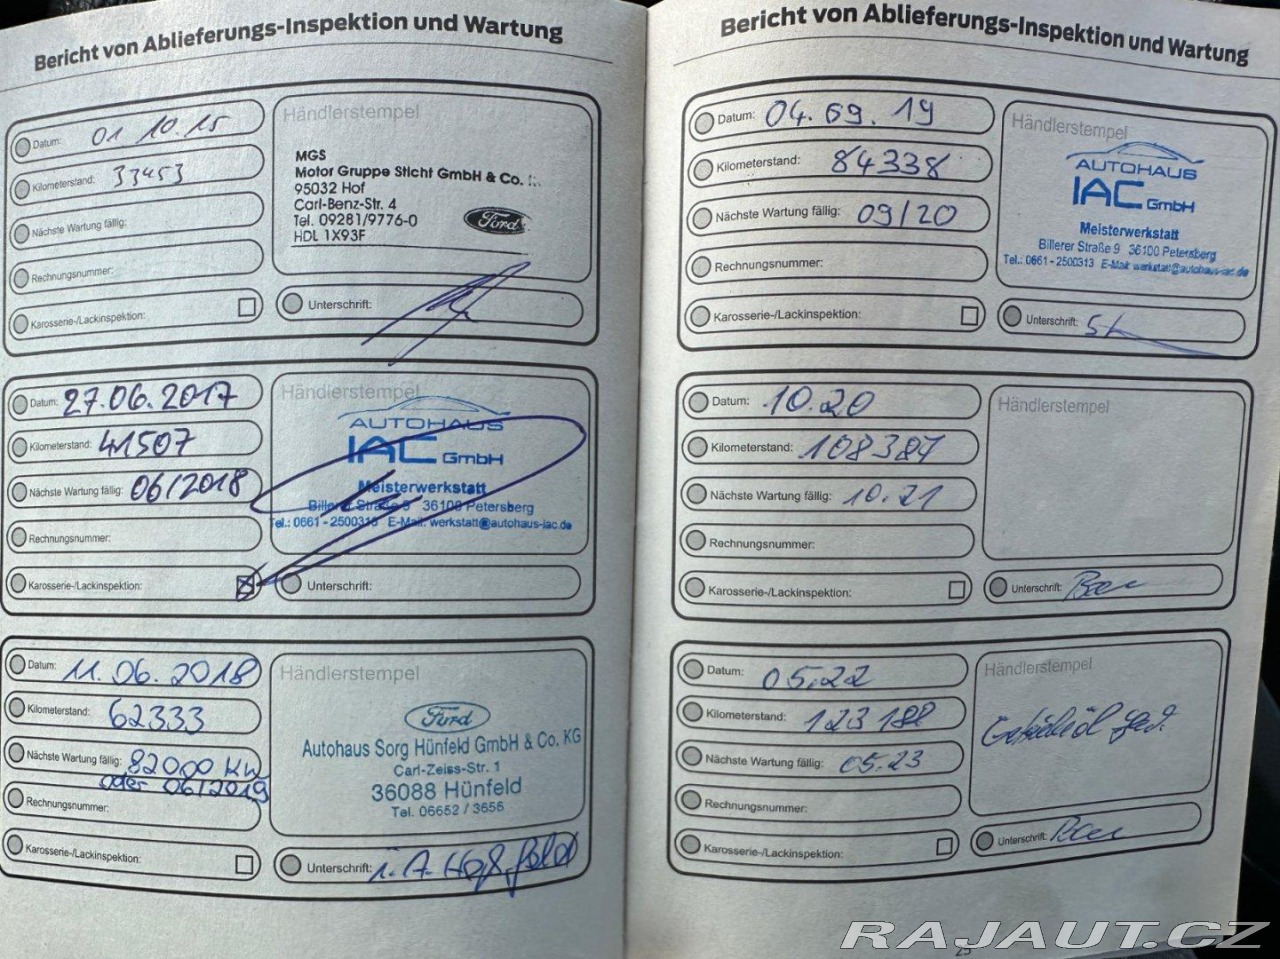 Bericht von Ablieferungs-Inspektion und Wartung
Datum: 01 10.15
Kilometerstand: 33453
Nächste Wartung fällig:
Rechnungsnummer:
Karosserie-/Lackinspektion:
Händlerstempel
MGS
Motor Gruppe Sticht GmbH & Co.
95032 Hof
Carl-Benz-Str. 4
Tel. 09281/9776-0
HDL 1X93F
Ford
Unterschrift:
Datum: 27.06.2017
Kilometerstand: 41507
Nächste Wartung fällig: 06/2018
Rechnungsnummer:
Karosserie-/Lackinspektion:
Händlerstempel
AUTOHAUS
IAC GmbH
Meisterwerkstatt
Billerer Straße 9 36100 Petersberg
Tel.: 0661 - 2500313 E-Mail: werkstatt@autohaus-iac.de
Unterschrift:
Datum: 11.06.2018
Kilometerstand: 62333
Nächste Wartung fällig: 82000 KM
oder 06/2019
Rechnungsnummer:
Karosserie-/Lackinspektion:
Händlerstempel
Ford
Autohaus Sorg Hünfeld GmbH & Co. KG
Carl-Zeiss-Str. 1
36088 Hünfeld
Tel. 06652 / 3656
Unterschrift: i.A.
Bericht von Ablieferungs-Inspektion und Wartung
Datum: 04.09.19
Kilometerstand: 84338
Nächste Wartung fällig: 09/20
Rechnungsnummer:
Karosserie-/Lackinspektion:
Händlerstempel
AUTOHAUS
IAC GmbH
Meisterwerkstatt
Billerer Straße 9 36100 Petersberg
Tel.: 0661 - 2500313 E-Mail: werkstatt@autohaus-iac.de
Unterschrift:
Datum: 10.20
Kilometerstand: 108387
Nächste Wartung fällig: 10.21
Rechnungsnummer:
Karosserie-/Lackinspektion:
Händlerstempel
Unterschrift:
Datum: 05.22
Kilometerstand: 123188
Nächste Wartung fällig: 05.23
Rechnungsnummer:
Karosserie-/Lackinspektion:
Händlerstempel
Getriebeöl gew.
Unterschrift:
25
RAJAUT.CZ